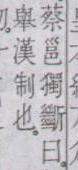 蔡邕獨斷曰
擧漢制也